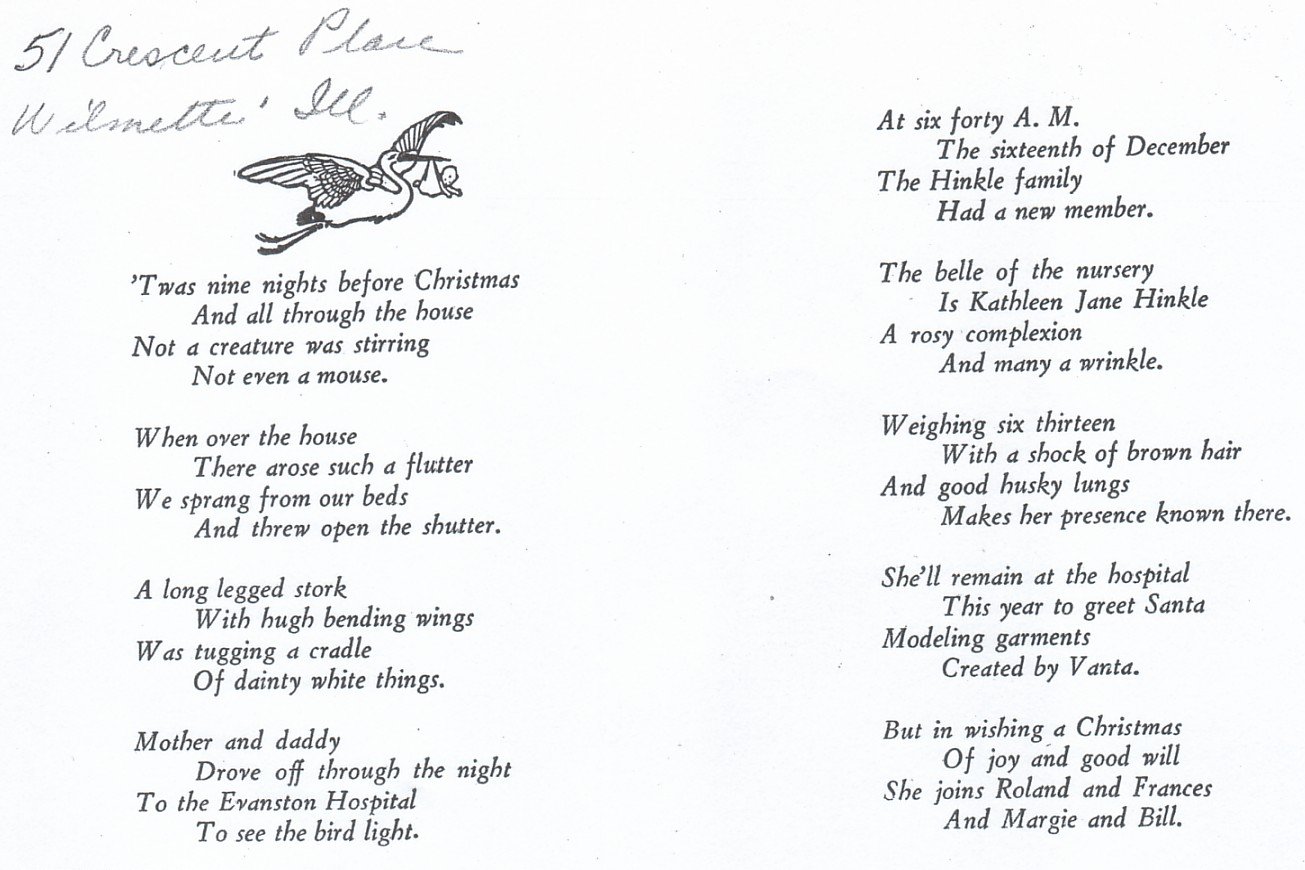 51 Crescent Place
Wilmette, Ill.
'Twas nine nights before Christmas
And all through the house
Not a creature was stirring
Not even a mouse.
When over the house
There arose such a flutter
We sprang from our beds
And threw open the shutter.
A long legged stork
With hugh bending wings
Was tugging a cradle
Of dainty white things.
Mother and daddy
Drove off through the night
To the Evanston Hospital
To see the bird light.
At six forty A. M.
The sixteenth of December
The Hinkle family
Had a new member.
The belle of the nursery
Is Kathleen Jane Hinkle
A rosy complexion
And many a wrinkle.
Weighing six thirteen
With a shock of brown hair
And good husky lungs
Makes her presence known there.
She'll remain at the hospital
This year to greet Santa
Modeling garments
Created by Vanta.
But in wishing a Christmas
Of joy and good will
She joins Roland and Frances
And Margie and Bill.